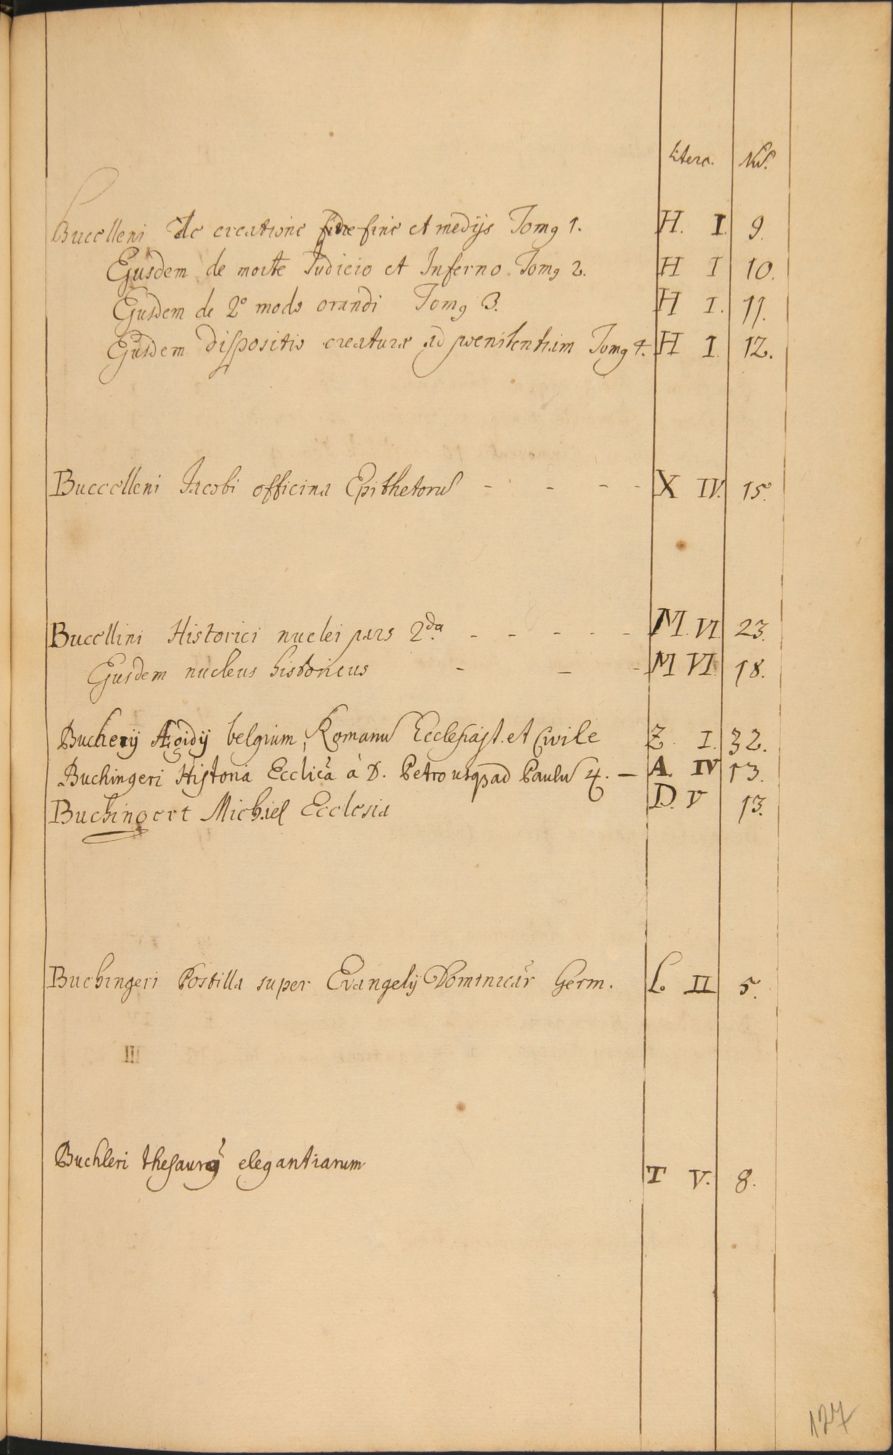 Litera. Nus.
Bucelleni de creatione fine et medijs Tomq 1. H. I 9.
Ejusdem de morte Judicio et Inferno. Tomq 2. H I 10.
Ejusdem de 2º modo orandi Tomq 3. H I. 11.
Ejusdem dispositio creaturæ ad pœnitentiam Tomq 4. H I. 12.
Buccelleni Jacobi officina Epithetorū - - - - X IV. 15.
Bucellini Historici nuclei pars 2da. - - - - - M. VI 23.
Ejusdem nucleus historicus - - - M VI 18.
Bucherij Ægidij belgium, Romanū Ecclesiast. et Civile Z. I. 32.
Buchingeri Historia Ecclicã à D. Petro usqȝ ad Paulū 4. — A IV 13.
Buchingert Michael Ecclesia D. V 13.
Buchingeri Postilla super Evangelij Dominicar Germ. L. II 5.
III
Buchleri thesaurq elegantiarum T V. 8.
127